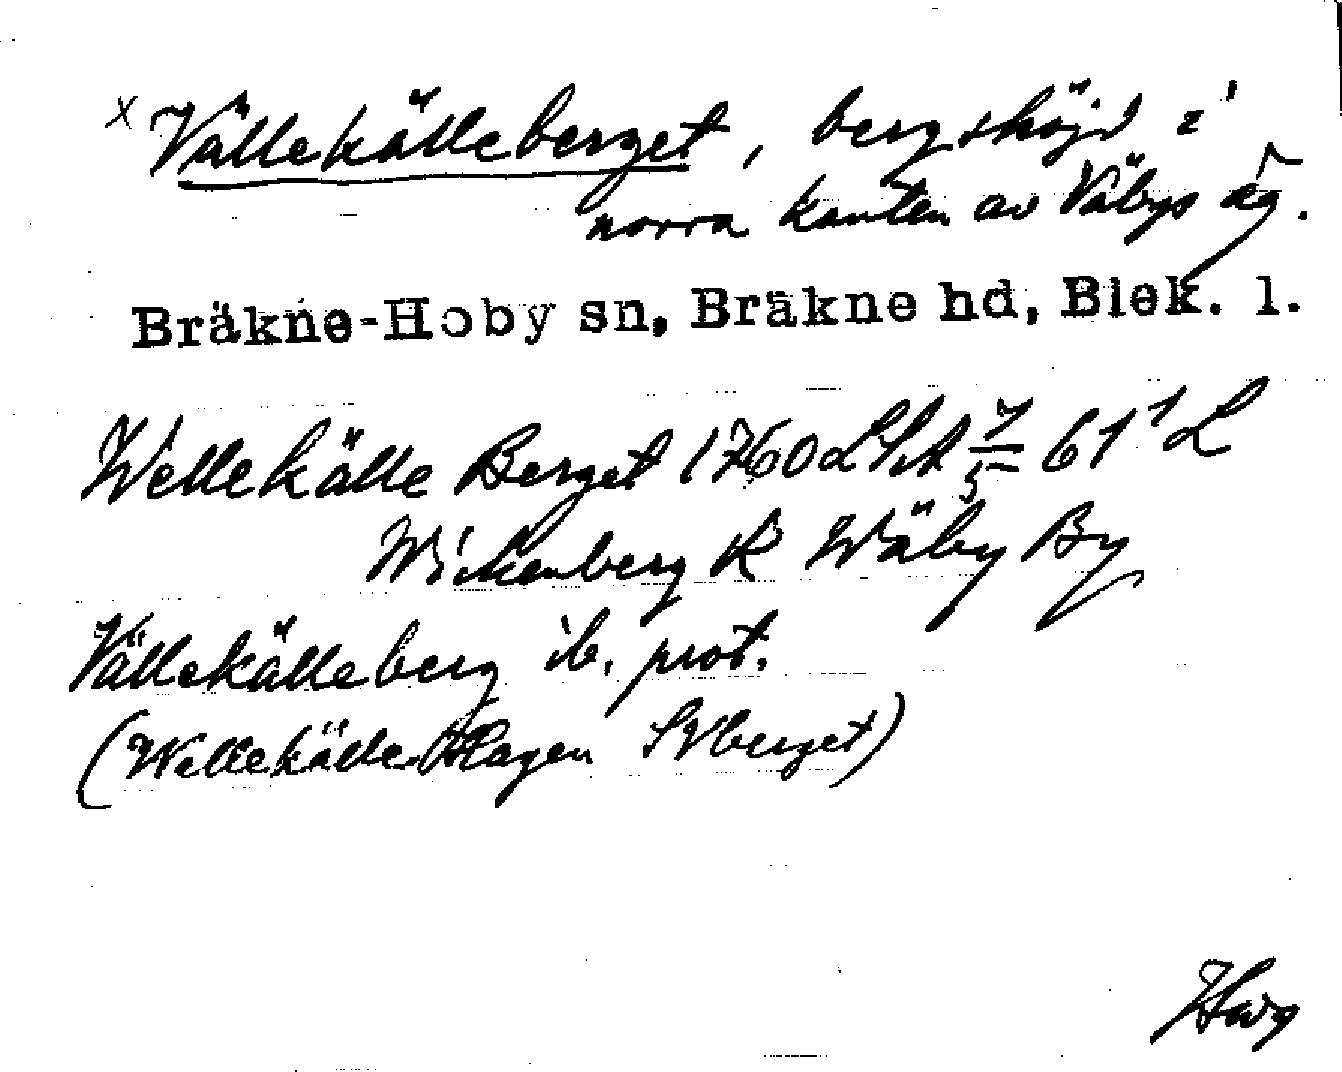 x Vällekälleberget, bergshöjd i
norra kanten av Väbys äg.
Bräkne-Hoby sn, Bräkne hd, Blek. l.
Wellekälle Berget 1760 LSA 61 L
Wickenberg K Wäby By
Vällekälleberg ib. prot.
(Wellekälle Hagen